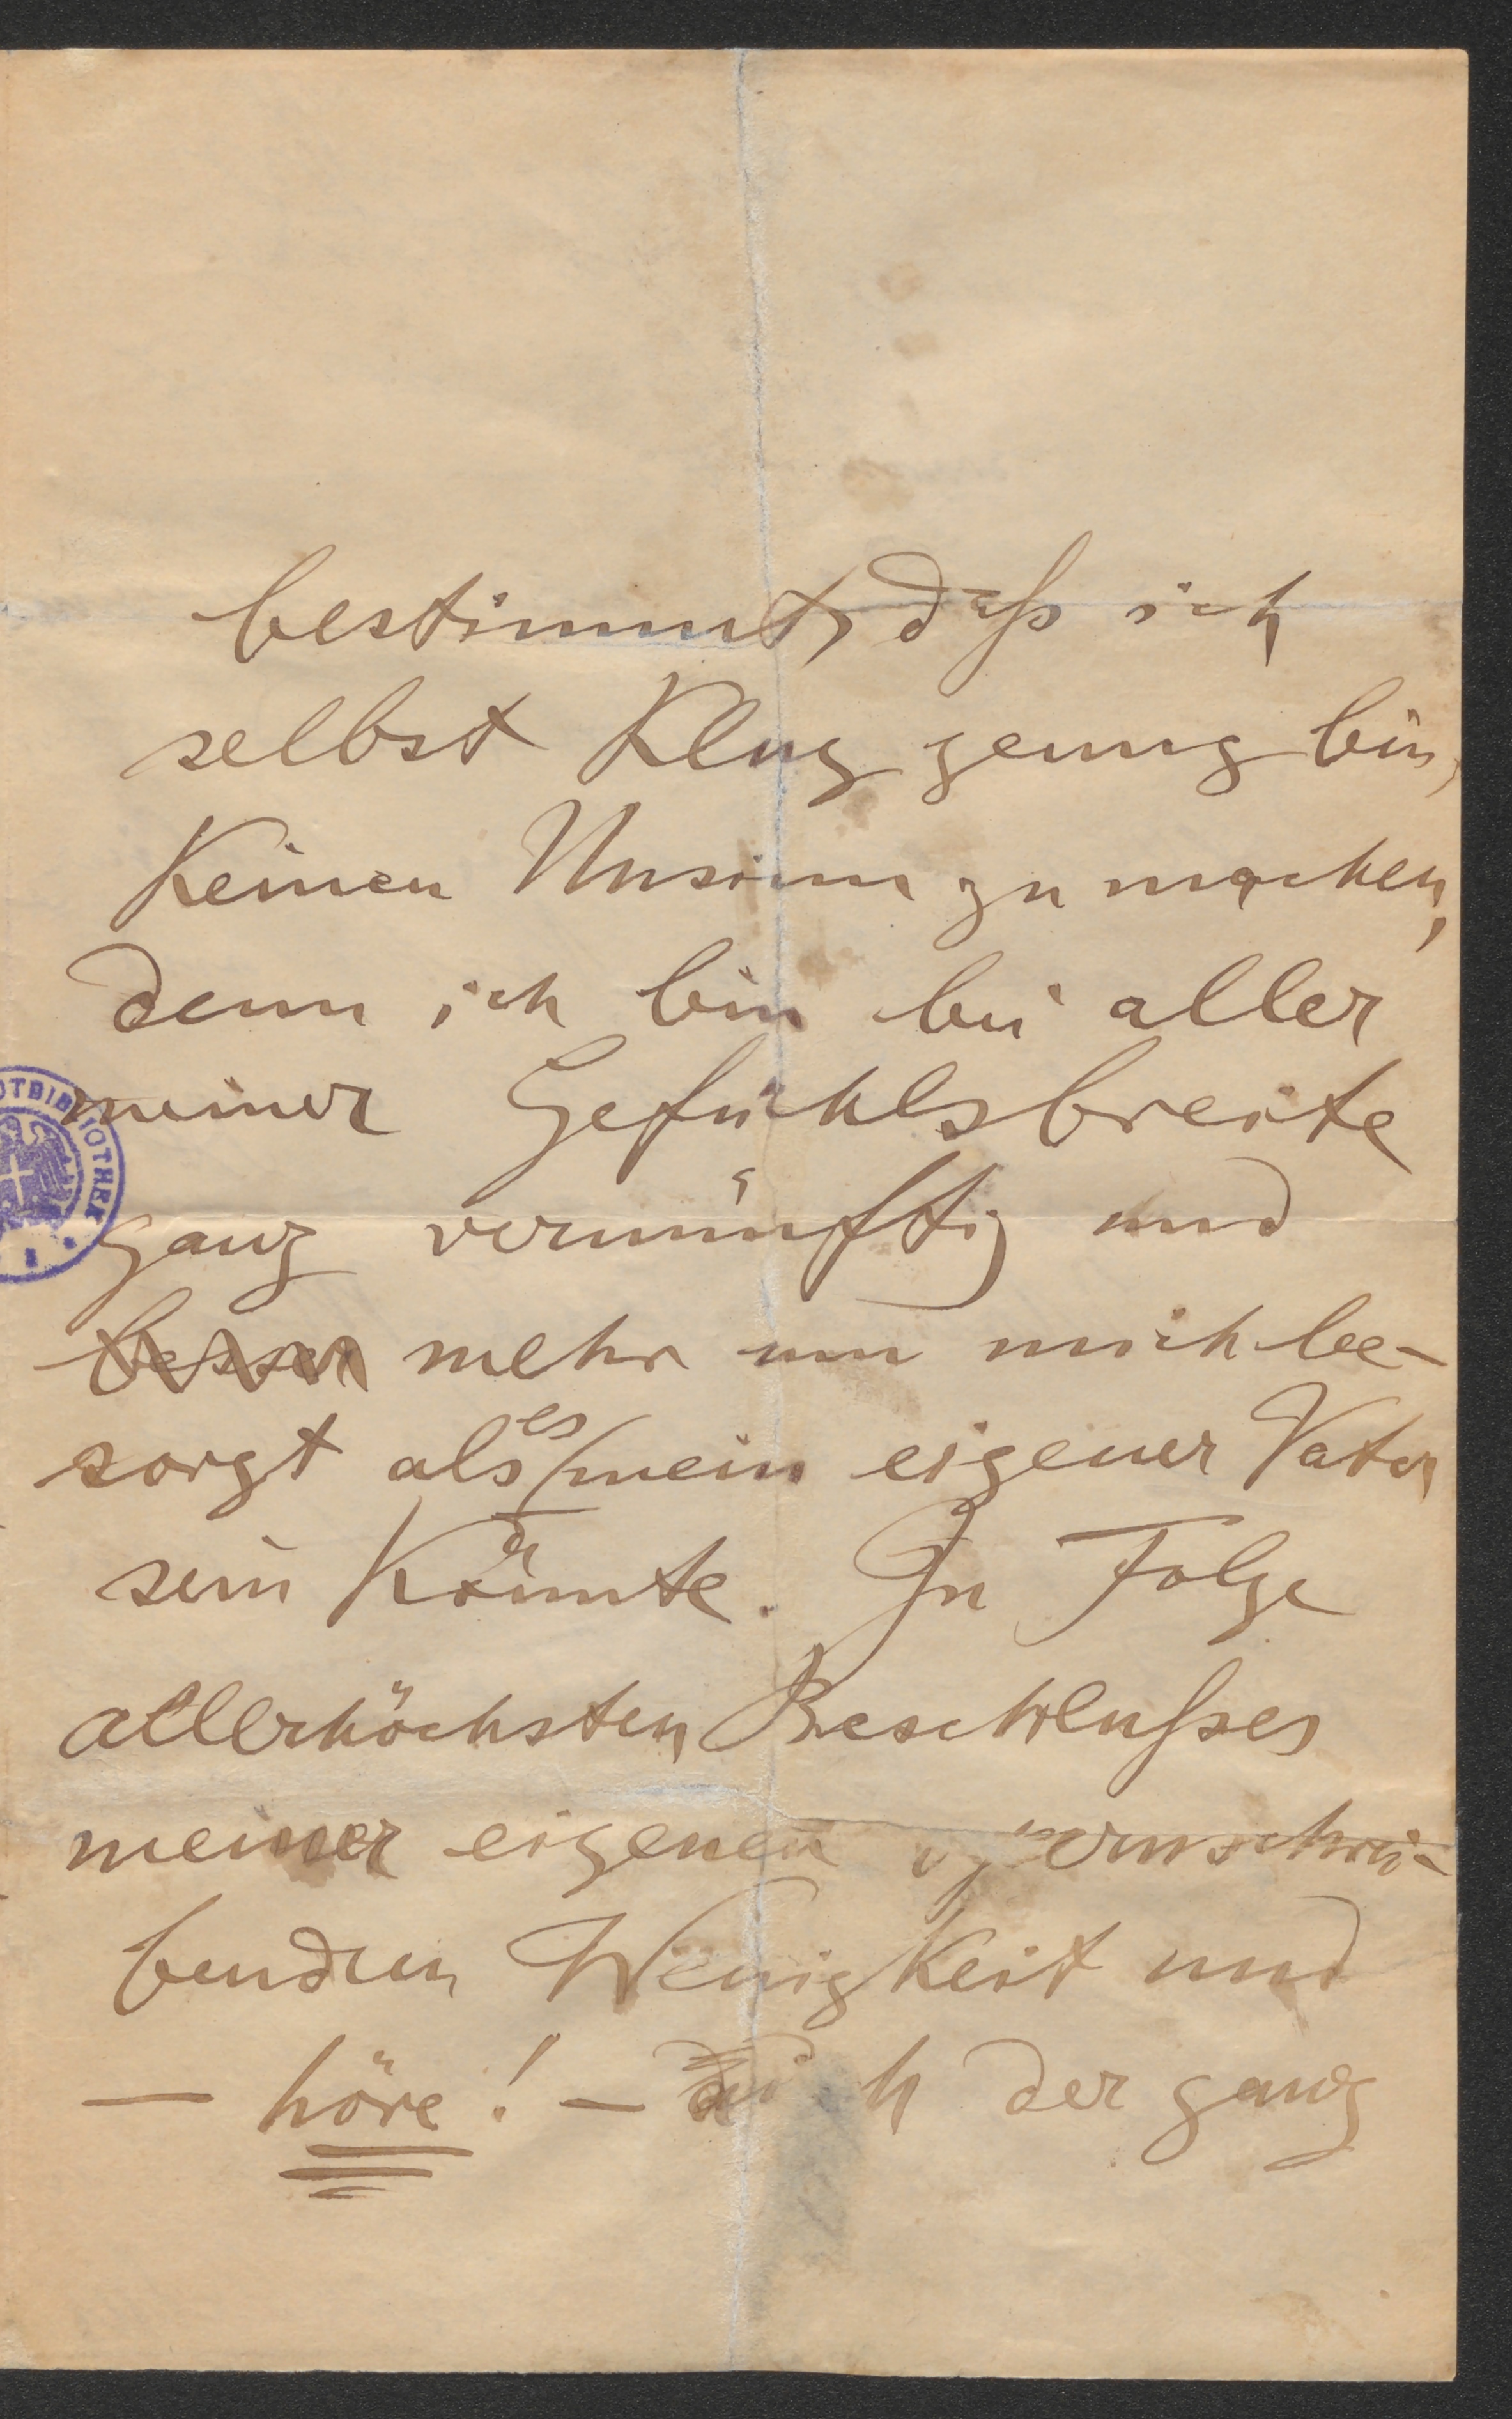 bestimmt, daß ich
selbst Klug genug bin,
Keinen Unsinn zu machen,
denn ich bin bei aller
meiner Gefühlsbreite
ganz vernünftig und
besser mehr um mich be-
sorgt als es mein eigener Vater
sein Könnte. In Folge
allerhöchsten Beschlußes
meiner eigenen
benden Wenigkeit und
— höre! — der ganz
OTBIBLIOTHEK